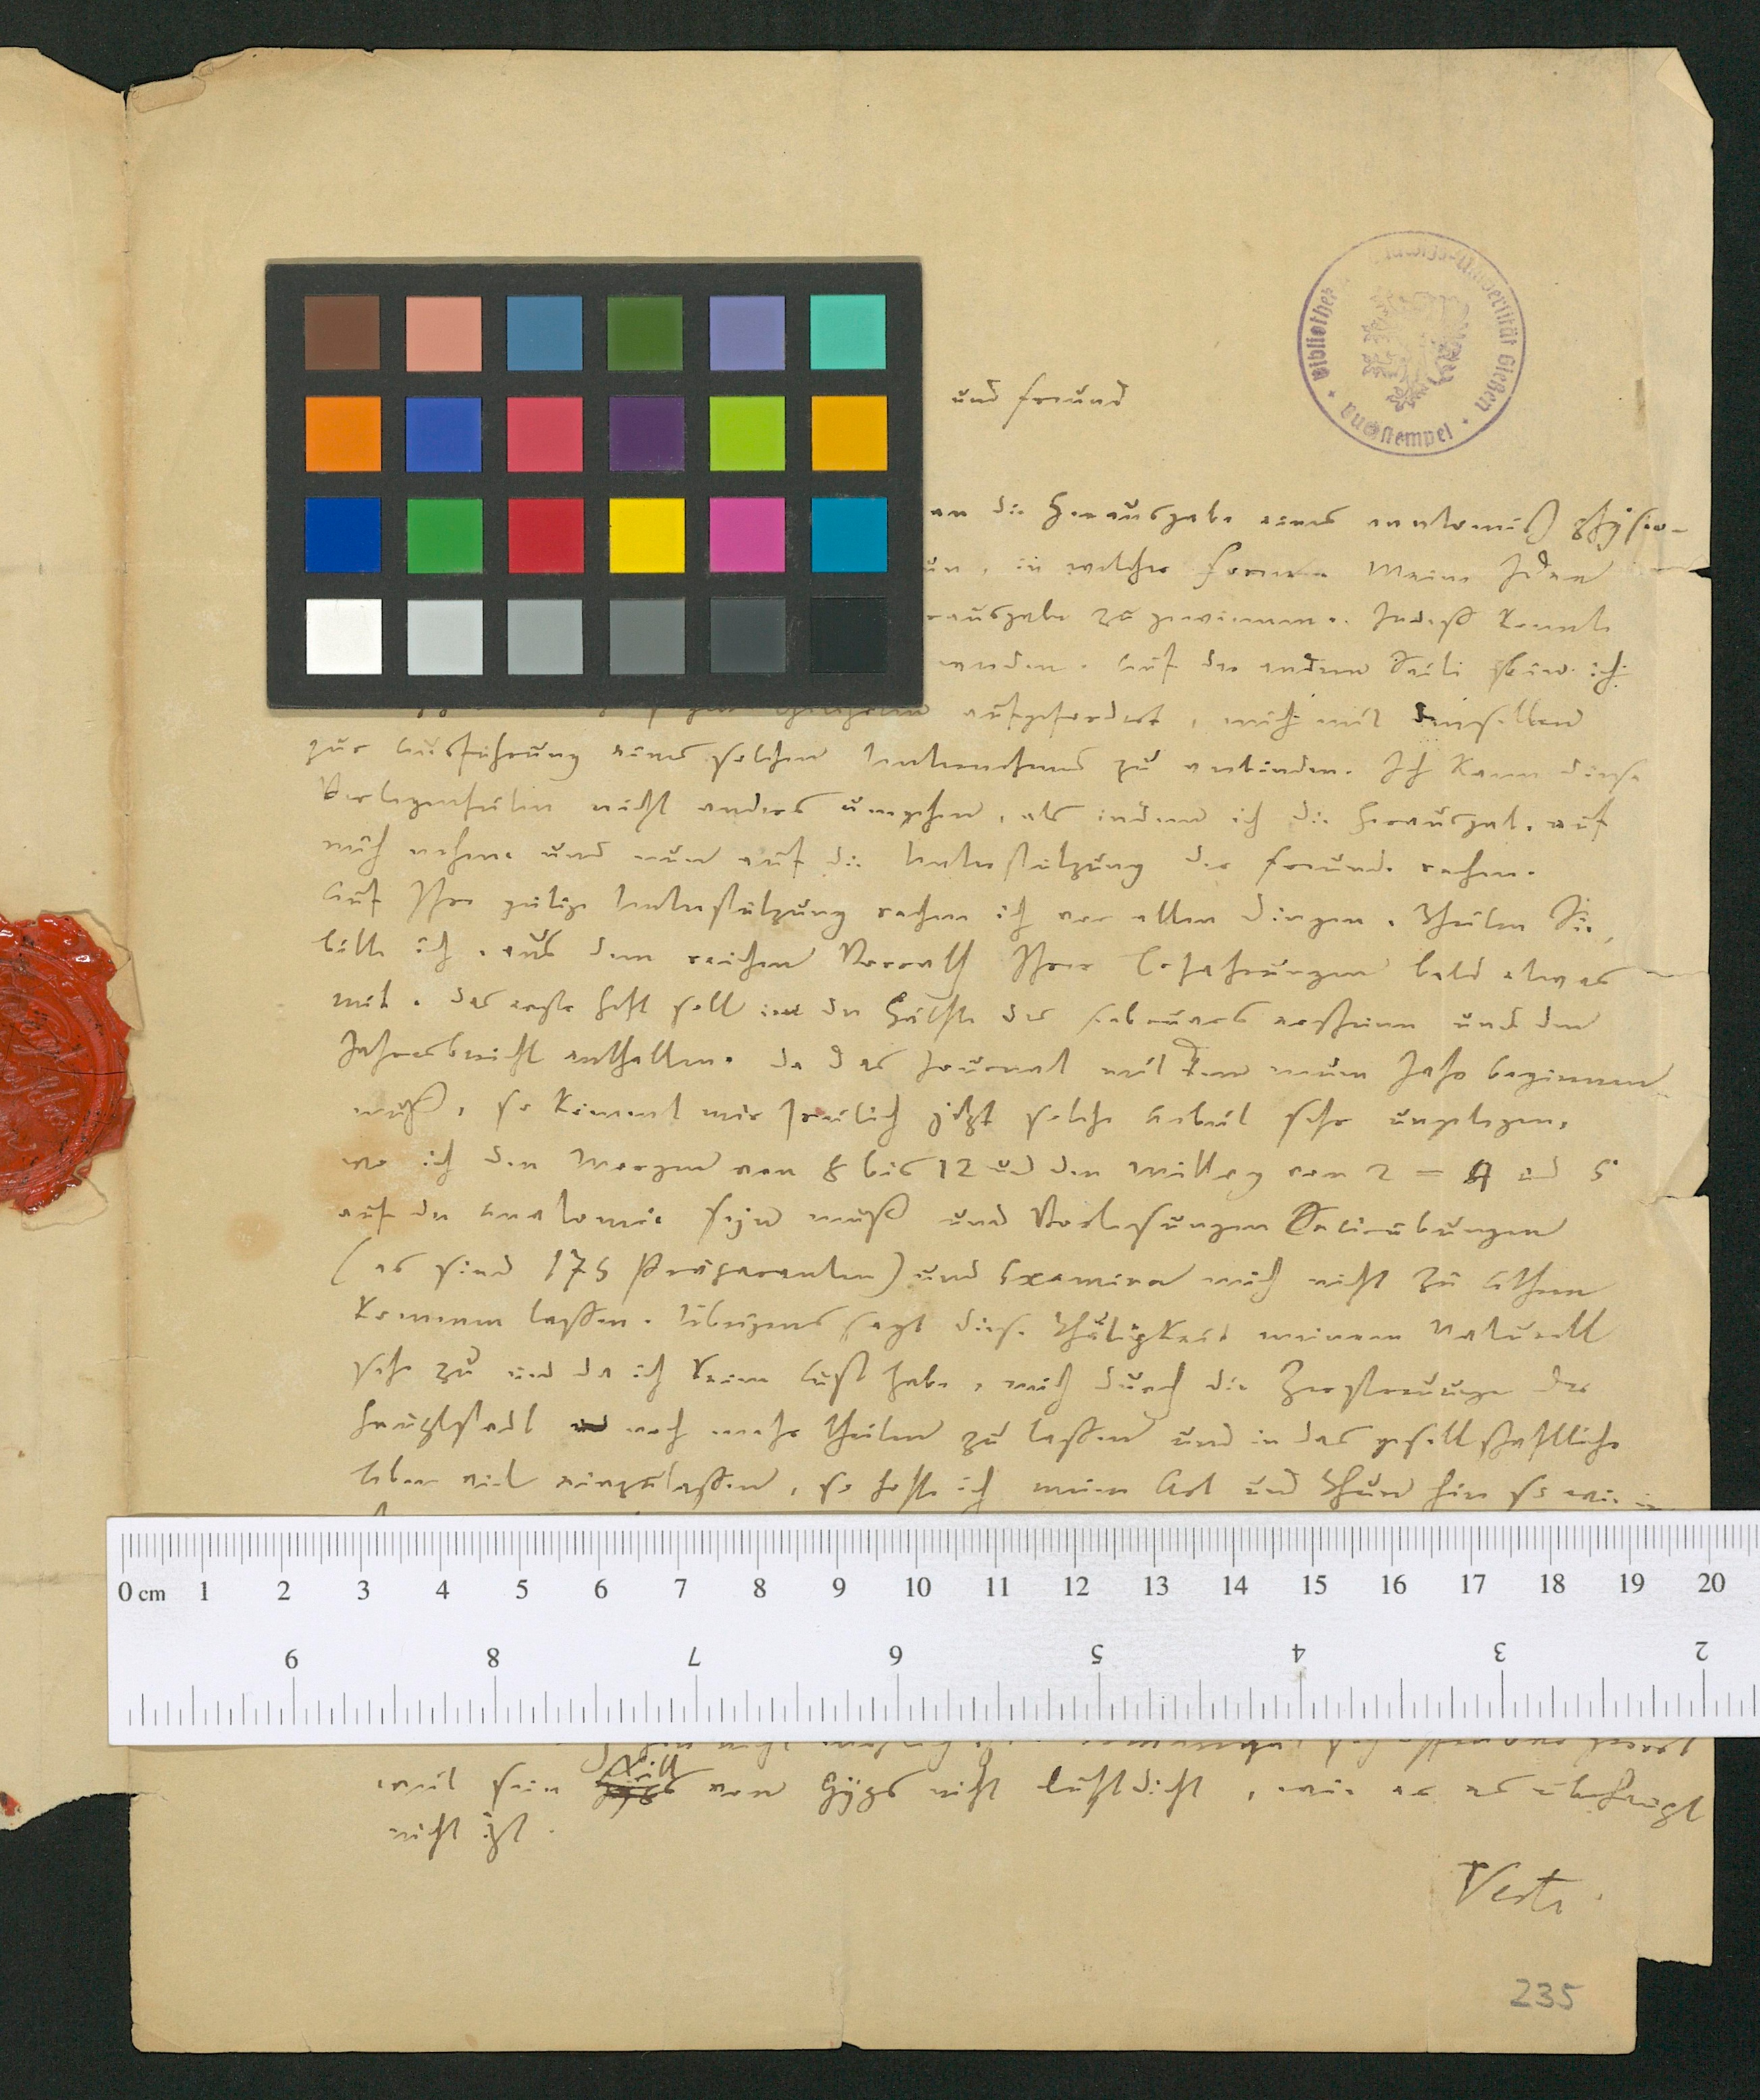 Bibliothek Ludwigs-Universität Gießen
Buchstempel
und Freund
an die Herausgabe eines anatomisch physio-
in welcher Form meine Ideen
zu gewinnen. Indeß konnte
werden. Auf der andern Seite bin ich
aufgefordert, mich mit denselben
zur Ausführung eines solchen Unternehmens zu verbinden. Ich kann diese
Verlegenheiten nicht anders umgehen, als indem ich die Herausgabe auf
mich nehme und nun auf die Unterstützung der Freunde rechne.
Auf Ihre gütige Unterstützung rechne ich vor allen Dingen. Theilen Sie,
bitte ich, aus dem reichen Vorrath Ihrer Erfahrungen bald etwas
mit. Das erste Heft soll in der Hälfte des Februars erscheinen und den
Jahresbericht enthalten. Da das Journal mit dem neuen Jahr beginnen
muß, so kömmt mir freilich jetzt solche Arbeit sehr ungelegen,
wo ich den Morgen von 8 bis 12 und den Mittag von 2 = 4 und 5
auf der Anatomie seyn muß und Vorlesungen Secirübungen
(es sind 175 Präparanten) und Examina mich nicht zu Athem
kommen lassen. Übrigens sagt diese Thätigkeit meinem Naturell
sehr zu und da ich keine Lust habe, mich durch die Zerstreuungen der
Hauptstadt noch mehr theilen zu lassen und in das gesellschaftliche
Leben viel einzulassen, so hoffe ich mein Art und Thun hier so wie in
0 cm 1 2 3 4 5 6 7 8 9 10 11 12 13 14 15 16 17 18 19 20
9 8 7 6 5 4 3 2
weil sein von Gyps nicht luftdicht, wie er es überhaupt
nicht ist.
Verte
235